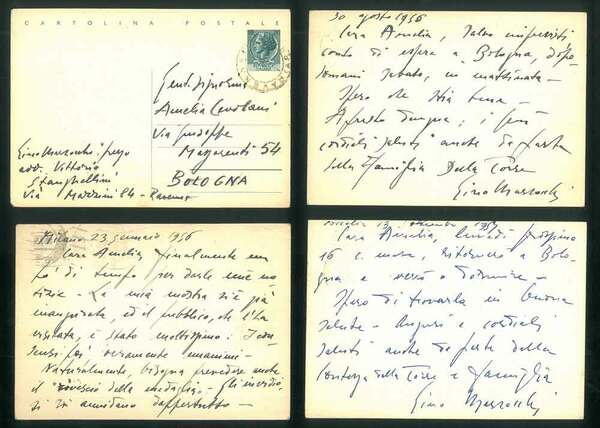 CARTOLINA POSTALE
Gent. Signorina
Amelia
Via Giuseppe
Mazzarenti 54
BOLOGNA
Gino Marzocchi presso
avv. Vittorio
Stanghellini
Via Mazzini 84 - Ravenna
30 agosto 1956
Cara Amelia, salvo imprevisti
conto di essere a Bologna, dopo-
domani sabato, in mattinata -
Spero che stia bene -
Auguri e i più
cordiali saluti anche da parte
della famiglia Della Torre
Gino Marzocchi
Milano 23 gennaio 1956
Cara Amelia, finalmente un
po' di tempo per darle mie no-
tizie - La mia mostra si è già
inaugurata, ed il pubblico, che l'ha
visitata, è stato moltissimo: I con-
sensi poi veramente unanimi -
Naturalmente, bisogna prevedere anche
il "rovescio della medaglia" - Gli invidio-
si si annidano dappertutto -
Cara Amelia, lunedì prossimo
16 c. mese, ritornerò a Bolo-
gna e verrò a dormire -
Spero di trovarla in buona
salute - Auguri e cordiali
saluti anche da parte della
Contessa della Torre e famiglia
Gino Marzocchi